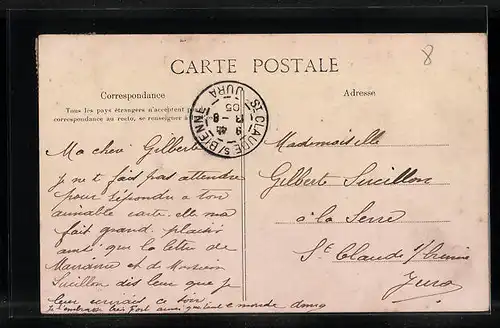 8
CARTE POSTALE
Correspondance
Tous les pays étrangers n'acceptent pas
correspondance au recto, se renseigner à
Adresse
ST CLAUDE S/BIENNE
JURA
9 45
13 - 8
05
Ma chère Gilberte
je ne fais pas attendre
pour répondre a ton
aimable carte elle ma
fait grand plaisir
ainsi que la lettre de
Marraine et de Monsieur
Sucillon dis leur que je
leur ce soir
Je t'embrasse bien fort ainsi que tout le monde
Mademoiselle
Gilberte Sucillon
à la Serre
St Claude s/Bienne
Jura